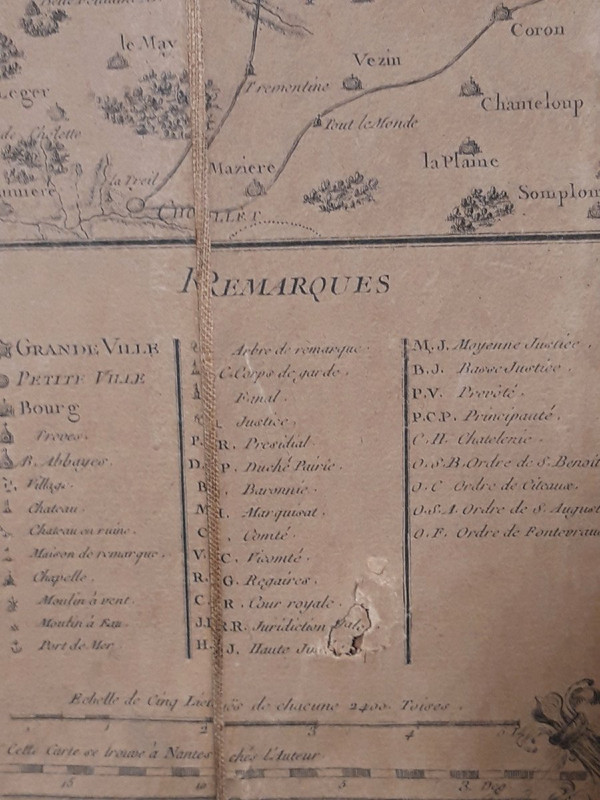 le May
Coron
Vezin
Leger
Trementine
Chanteloup
de Cholette
Tout le Monde
la Plaine
Maziere
la Treil
Somploir
CHOLLET
REMARQUES
GRANDE VILLE
PETITE VILLE
Bourg
Treves.
R. Abbayes.
Village.
Chateau.
Chateau en ruine.
Maison de remarque.
Chapelle.
Moulin à vent.
Moulin à Eau.
Port de Mer.
Arbre de remarque.
C. Corps de garde.
Fanal.
Justice.
P. R. Presidial.
D. P. Duché Pairie.
B. Baronnie.
M. Marquisat.
C. Comté.
V. C. Vicomté.
R. G. Regaires.
C. R. Cour royale.
J.R.R. Juridiction
H. J. Haute
M.J. Moyenne Justice.
B.J. Basse Justice.
P.V. Prevôté.
P.C.P. Principauté.
C.H. Chatelenie.
O.S.B. Ordre de S. Benoit
O.C Ordre de Citeaux.
O.S.A. Ordre de S. August
O.F. Ordre de Fontevrau
Echelle de Cinq Lieües de chacune 2400 Toises.
1 2 3 4 5
Cette Carte se trouve à Nantes chés l'Auteur
15 10 5